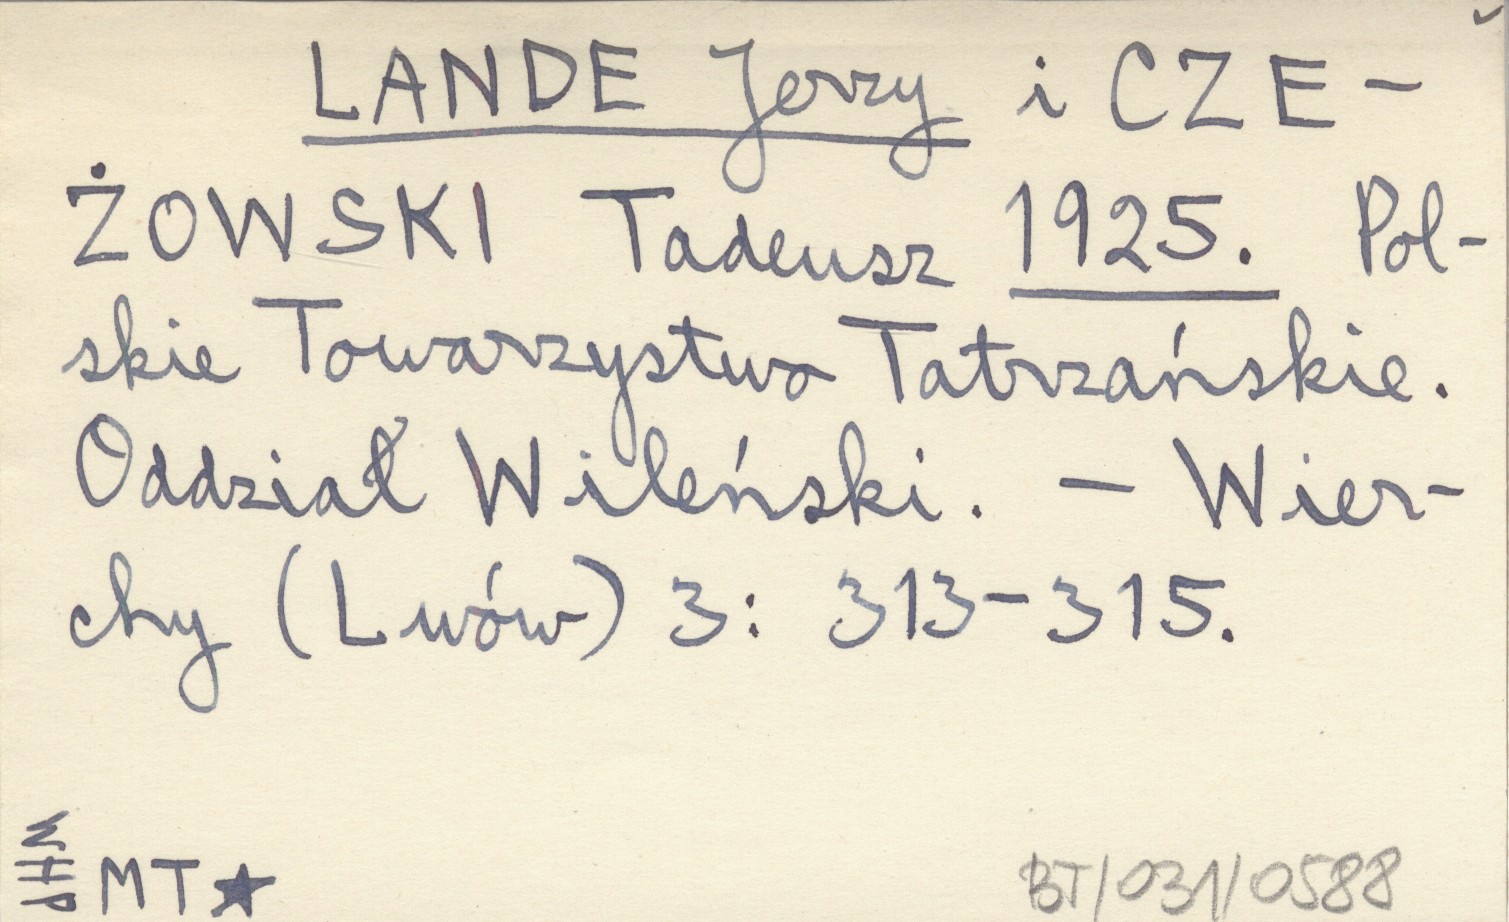 LANDE Jerzy i CZE-
ŻOWSKI Tadeusz 1925. Pol-
skie Towarzystwo Tatrzańskie.
Oddział Wileński. — Wier-
chy (Lwów) 3: 313-315.
WHP MT★
BT/031/0588